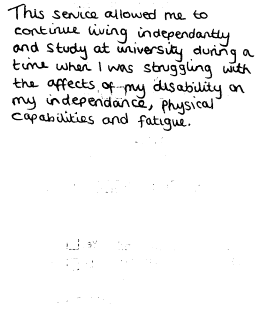 This service allowed me to
continue living independantly
and study at university during a
time when I was struggling with
the affects of my disability on
my independance, physical
capabilities and fatigue.